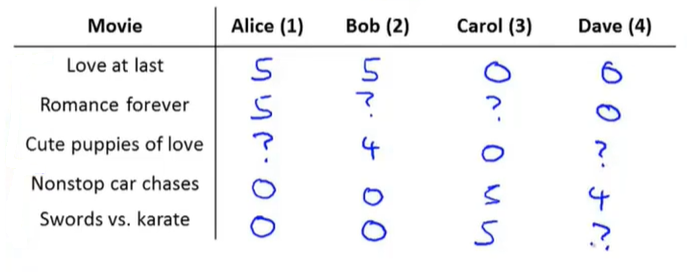 Movie Alice (1) Bob (2) Carol (3) Dave (4)
Love at last 5 5 0 0
Romance forever 5 ? ? 0
Cute puppies of love ? 4 0 ?
Nonstop car chases 0 0 5 4
Swords vs. karate 0 0 5 ?